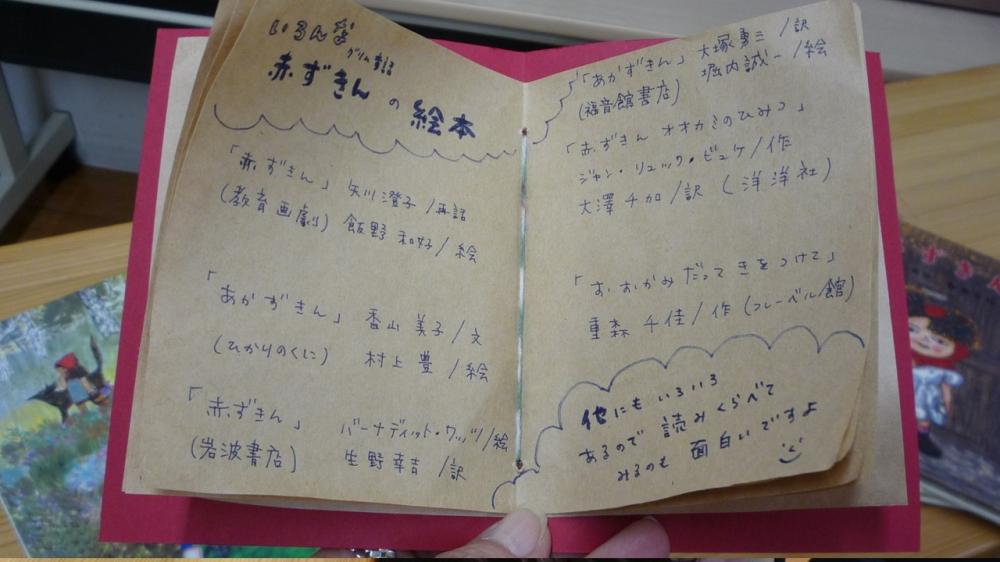 いろんな
グリム童話
赤ずきんの絵本
「赤ずきん」 矢川澄子/再話
(教育画劇) 飯野和好/絵
「あかずきん」 香山美子/文
(ひかりのくに) 村上豊/絵
「赤ずきん」 バーナディット・ワッツ/絵
(岩波書店) 生野幸吉/訳
「あかずきん」 大塚勇三/訳
(福音館書店) 堀内誠一/絵
「赤ずきん オオカミのひみつ」
ジャン・リュック・ビュケ/作
大澤千加/訳 (洋洋社)
「おおかみだってきをつけて」
重森千佳/作 (フレーベル館)
他にもいろいろ
あるので 読みくらべて
みるのも 面白いですよ
ずきん